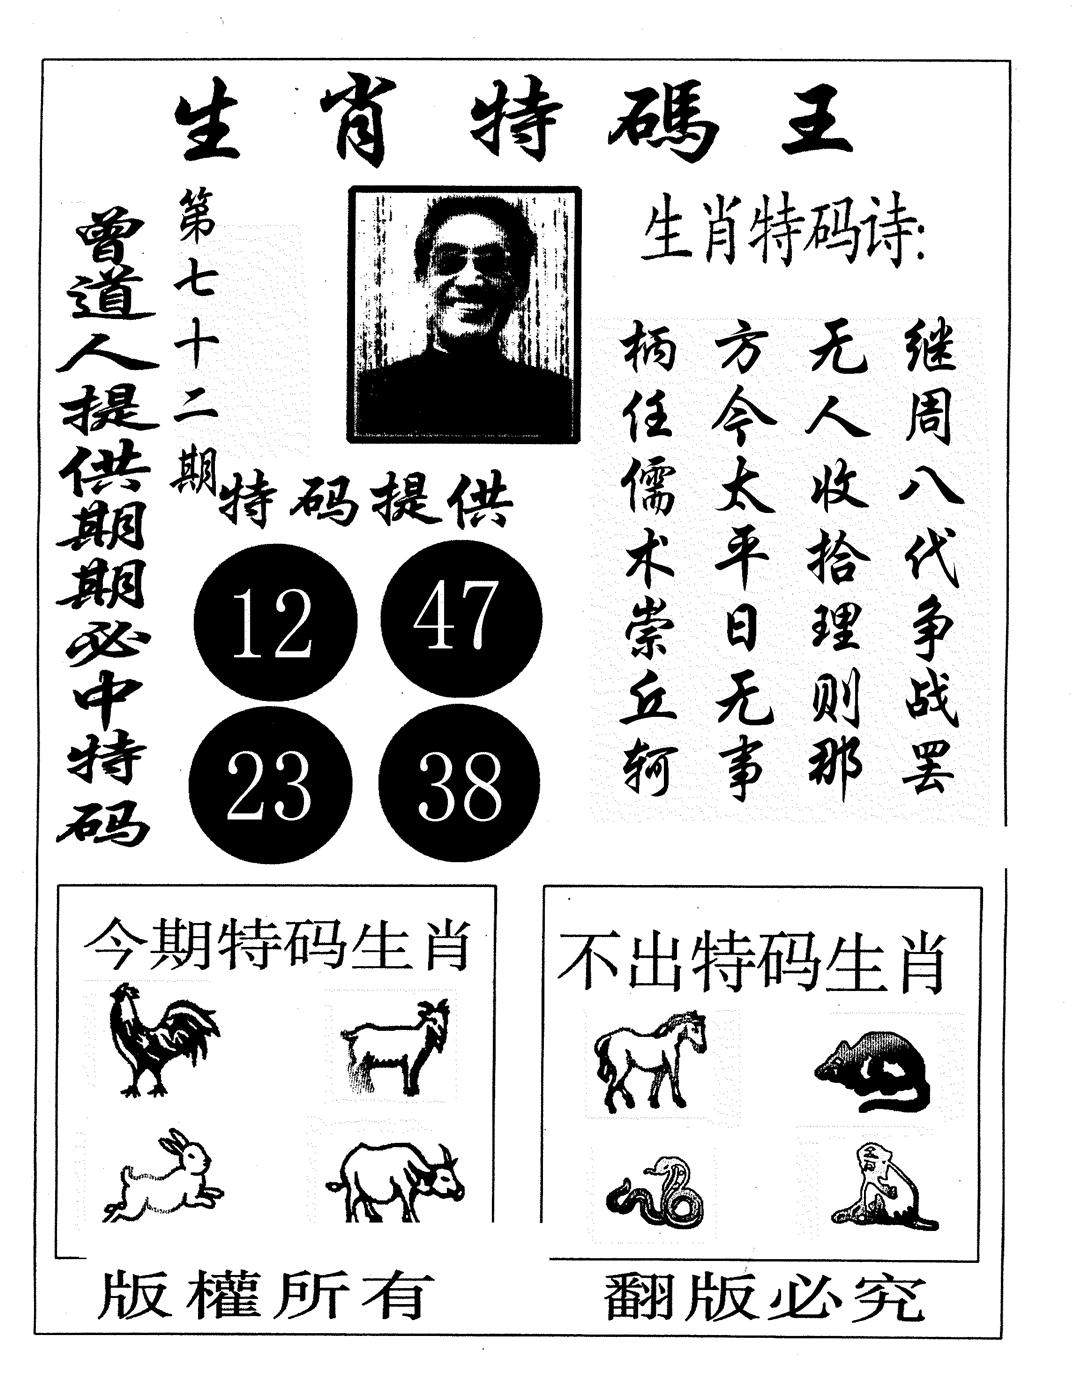 生肖特碼王
曾道人提供期期必中特码
第七十二期
特码提供
12 47
23 38
生肖特码诗:
继周八代争战罢
无人收拾理则那
方今太平日无事
柄任儒术崇丘轲
今期特码生肖
不出特码生肖
版權所有
翻版必究